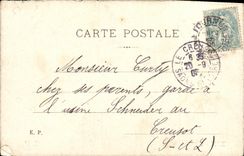 CARTE POSTALE
LE CREUSOT
Monsieur Curty
chez ses parents, garde à
l'usine Schneider au
Creusot
(S-et-L)
K. P.